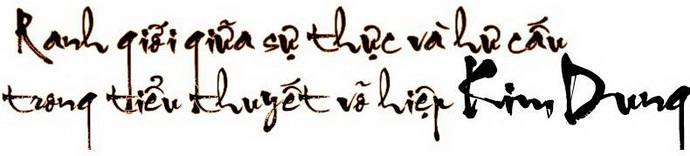 Ranh giới giữa sự thực và hư cấu
trong tiểu thuyết võ hiệp Kim Dung